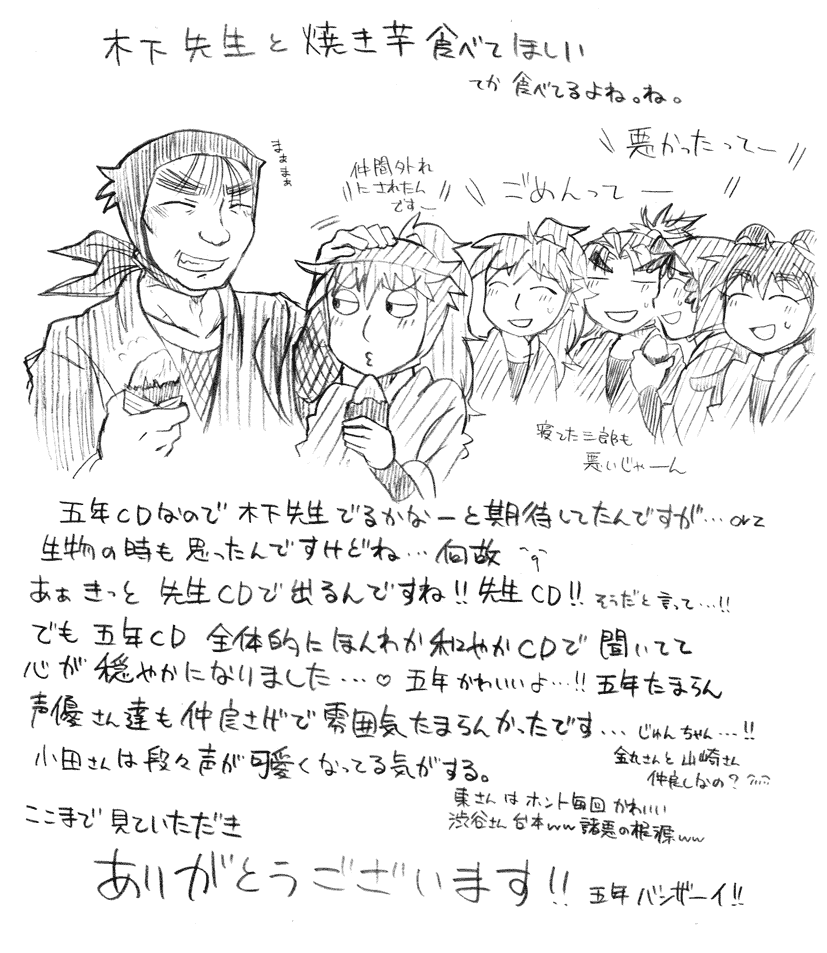 木下先生と焼き芋食べてほしい
てか食べてるよね。ね。
まぁまぁ
仲間外れ
にされたん
ですー
悪かったってー
ごめんってー
寝てた三郎も
悪いじゃーん
五年CDなので木下先生でるかなーと期待してたんですが…orz
生物の時も思ったんですけどね…何故
あぁきっと先生CDで出るんですね!!先生CD!!そうだと言って…!!
でも五年CD全体的にほんわか和やかCDで聞いてて
心が穏やかになりました…♡五年かわいいよ…!!五年たまらん
声優さん達も仲良さげで雰囲気たまらんかったです…じゅんちゃん…!!
小田さんは段々声が可愛くなってる気がする。
金丸さんと山崎さん
仲良しなの?
東さんはホント毎回かわいい
渋谷さん台本ww諸悪の根源ww
ここまで見ていただき
ありがとうございます!!五年バンザーイ!!